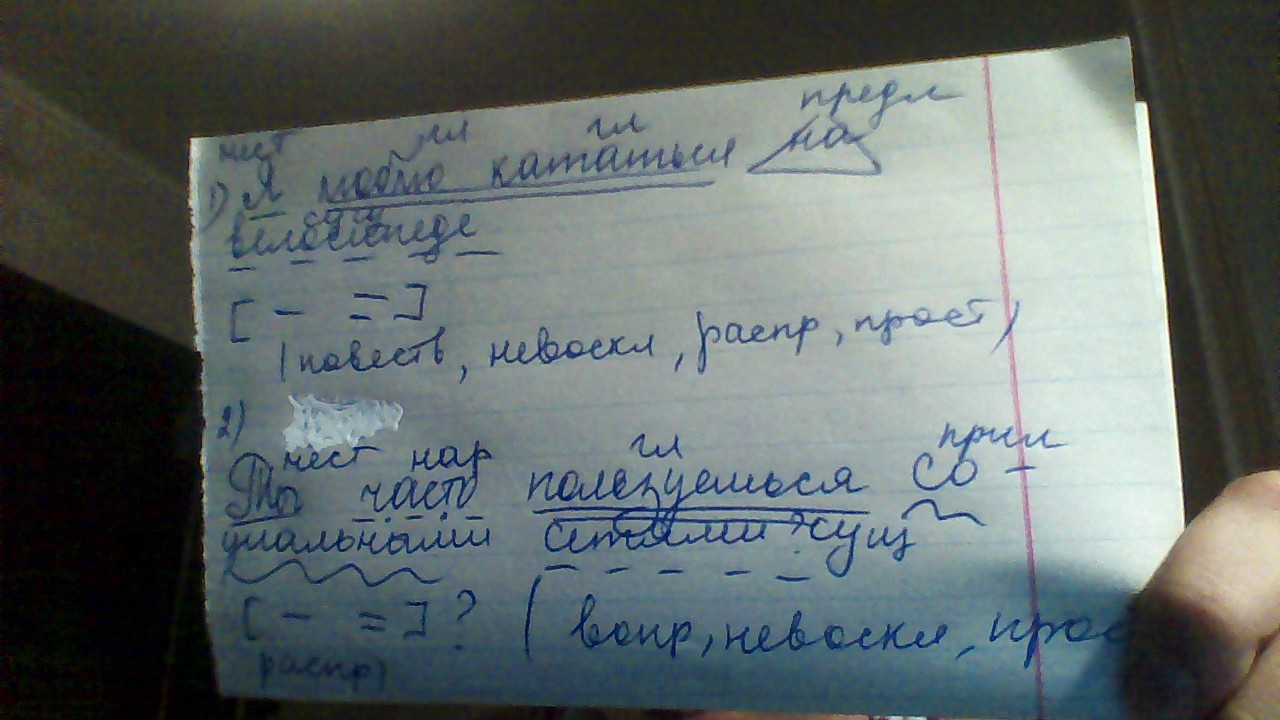 мест гл гл предл
1) Я люблю кататься на
сущ
велосипеде
[ - = ]
(повеств, невоскл, распр, прост)
2)
мест нар гл прил
Ты часто пользуешься со-
циальными сетями? сущ
[ - = ]? (вопр, невоскл, прос
распр)